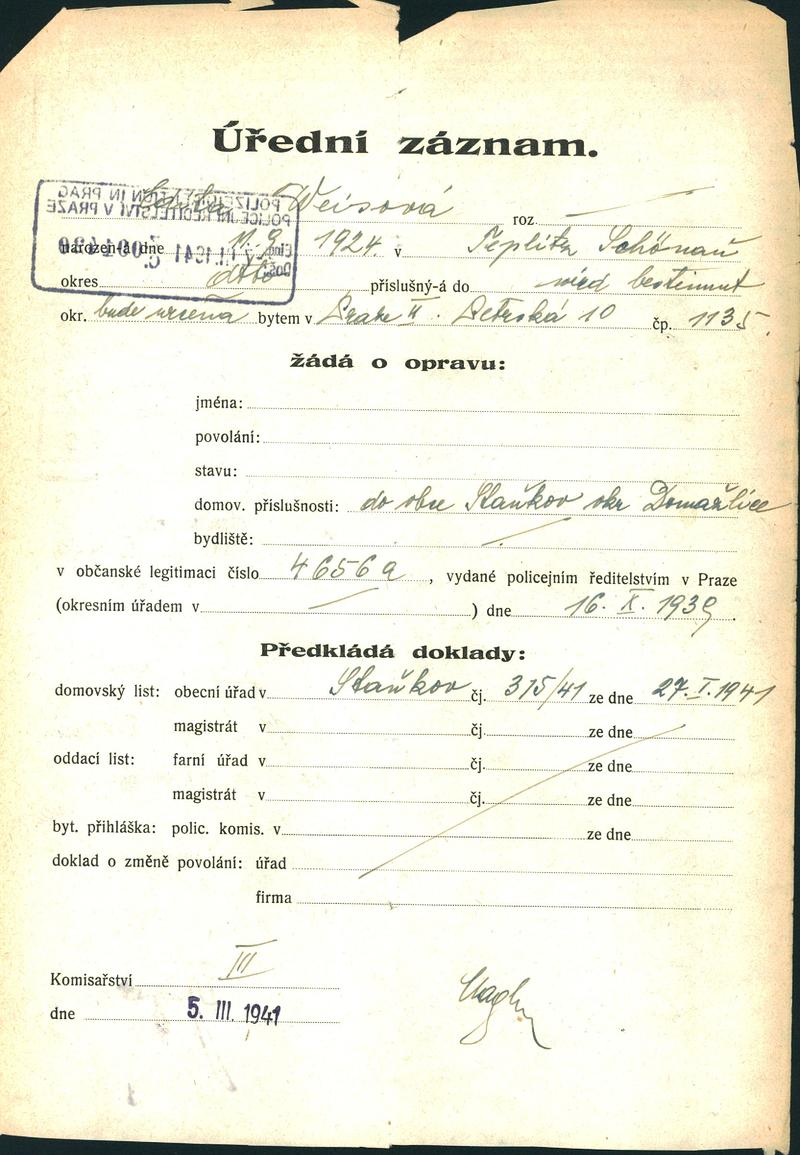 Úřední záznam.
POLIZEIDIREKTION IN PRAG
POLICEJNÍ ŘEDITELSTVÍ V PRAZE
Weisová roz.
narozen-á dne 11.9. 1924. v Teplitz Schönau
okres dtto příslušný-á do wird bestimmt
okr. bude určena bytem v Praze II. Petrská 10 čp. 1135.
žádá o opravu:
jména:
povolání:
stavu:
domov. příslušnosti: do obce Staňkov okr Domažlice
bydliště:
v občanské legitimaci číslo 46569 , vydané policejním ředitelstvím v Praze
(okresním úřadem v ) dne 16. X. 1939.
Předkládá doklady:
domovský list: obecní úřad v Staňkov čj. 315/41 ze dne 27.I.1941
magistrát v čj. ze dne
oddací list: farní úřad v čj. ze dne
magistrát v čj. ze dne
byt. přihláška: polic. komis. v ze dne
doklad o změně povolání: úřad
firma
Komisařství III
dne 5. III. 1941